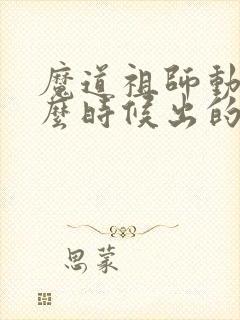 魔道祖師動
麼時候出的
思蒙